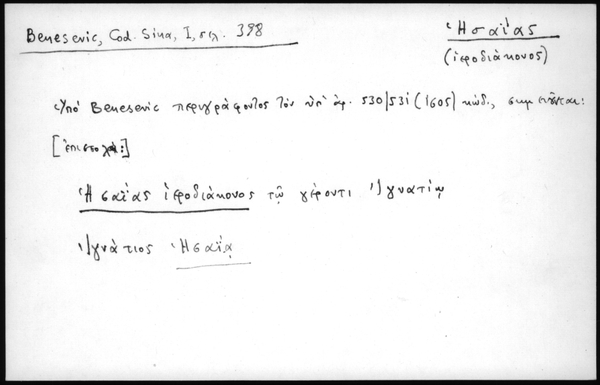 Benesevic, Cod. Sina, I, σελ. 398
Ἡσαΐας
(ἱεροδιάκονος)
Ὑπὸ Benesevic περιγράφοντος τὸν ὑπ' ἀρ. 530/531 (1605) κώδ., σημειοῦται:
[ἐπιστολαί:]
Ἡσαΐας ἱεροδιάκονος τῷ γέροντι Ἰγνατίῳ
Ἰγνάτιος Ἡσαΐᾳ